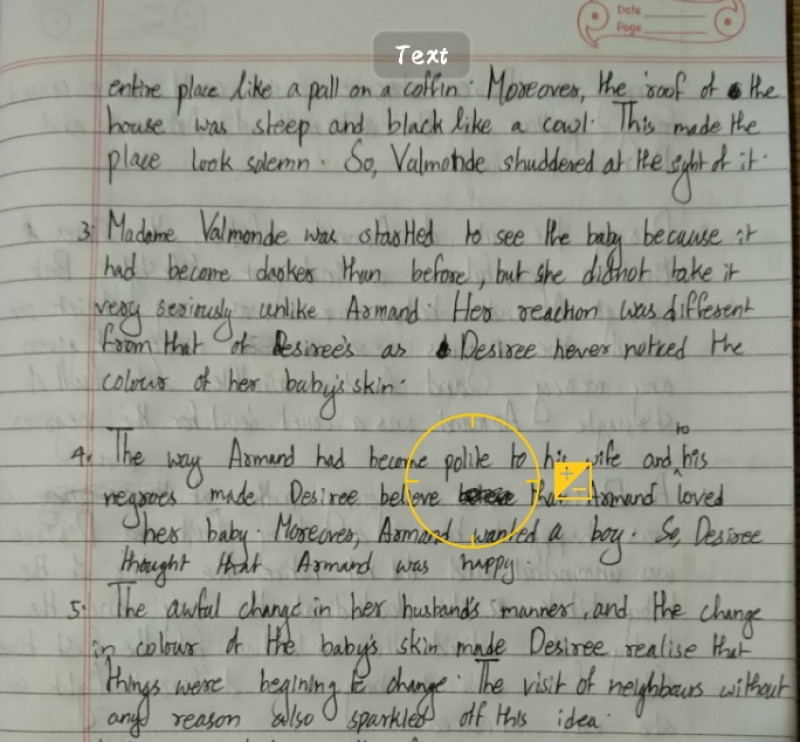 Date
Page
Text
entire place like a pall on a coffin. Moreover, the roof of the
house was steep and black like a cowl. This made the
place look solemn. So, Valmonde shuddered at the sight of it.
3. Madame Valmonde was startled to see the baby because it
had become darker than before, but she didnot take it
very seriously unlike Armand. Her reaction was different
from that of Desiree's as Desiree never noticed the
colour of her baby's skin.
4. The way Armand had become polite to his wife and to his
negroes made Desiree believe that Armand loved
her baby. Moreover, Armand wanted a boy. So, Desiree
thought that Armand was happy.
5. The awful change in her husband's manner, and the change
in colour of the baby's skin made Desiree realise that
things were begining to change. The visit of neighbours without
any reason also sparkled off this idea.